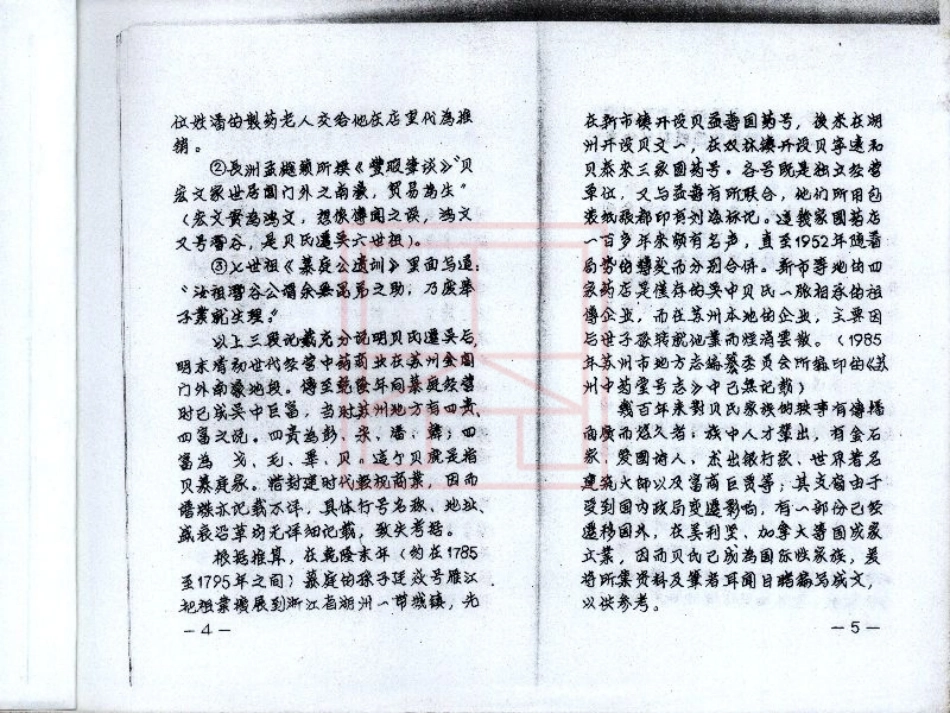 位姓潘的製药老人交给他在店里代為推
销。
②長洲孟樾籁所撰《豐暇筆谈》"贝
宏文家世居閶门外之南濠，贸易為生"
（宏文實為鸿文，想係傳闻之误，鸿文
又号潛谷，是贝氏遷吴六世祖）。
③七世祖《慕庭公遗训》里面写道：
"汝祖潛谷公谓余無昆弟之助，乃废举
子業就生理。"
以上三段记載充分说明贝氏遷吴后，
明末清初世代经营中药商业在苏州金閶
门外南濠地段。傳至乾隆年间慕庭经营
时已成吴中巨富，当时苏州地方有四贵、
四富之说。四贵為彭、宋、潘、韩；四
富為 戈、毛、畢、贝。这个贝就是指
贝慕庭家。惜封建时代輕视商業，因而
谱牒亦记載不详，具体行号名称、地址、
盛衰沿革均无详细记載，致失考据。
根据推算，在乾隆末年（约在1785
至1795年之间）慕庭的孫子廷 号雁江
把祖業擴展到浙江省湖州一带城镇，先
－4－
在新市镇开设贝益 国药号，後来在湖
州开设贝文一，在双林镇开设贝寧遠和
贝泰来三家国药号。各号既是独立经营
单位，又与益 有所联合，他们所用包
装纸张都印有刘海标记。这幾家國药店
一百多年来颇有名声，直至1952年随着
局势的轉变而分别合併。新市等地的四
家药店是僅存的吴中贝氏一脉相承的祖
傳企业，而在苏州本地的企业，主要因
后世子孫转就他業而烟消雲散。（1985
年苏州市地方志编纂委员会所编印的《苏
州中药堂号志》中已無记載）
幾百年来對贝氏家族的轶事有傳播
而廣而悠久者：族中人才輩出，有金石
家、爱國诗人、杰出银行家、世界著名
建筑大师以及富商巨贾等；其支裔由于
受到国内政局变遷影响，有一部份已经
遷移国外，在美利坚、加拿大等国成家
立業，因而贝氏已成為国际性家族，爰
将所集资料及筆者耳闻目睹编写成文，
以供参考。
－5－